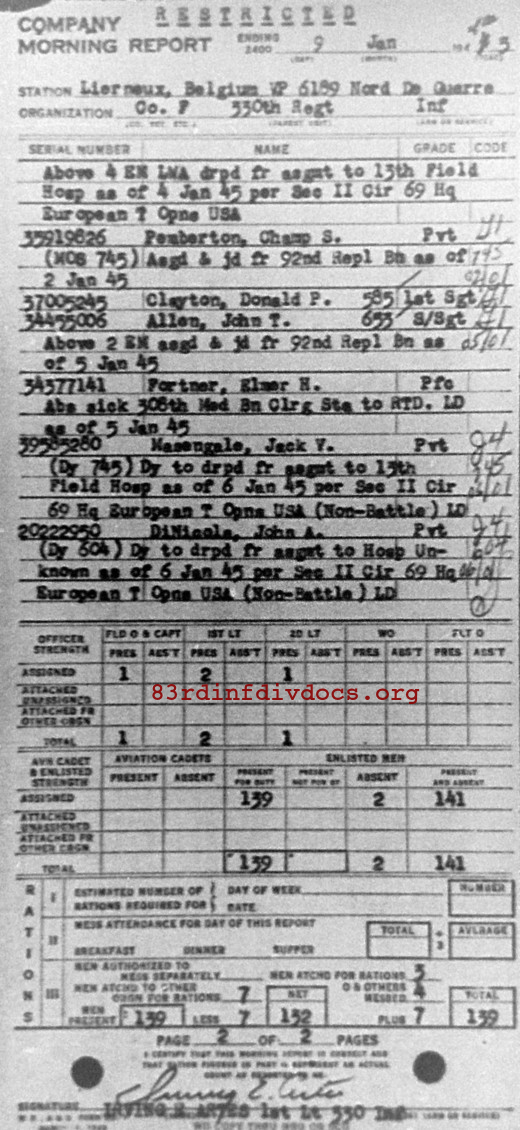 RESTRICTED
COMPANY
MORNING REPORT ENDING 2400 9 Jan 194
STATION Lierneux, Belgium VP 6189 Nord De Guerre
ORGANIZATION Co. F 330th Regt Inf
SERIAL NUMBER NAME GRADE CODE
Above 4 EM LWA drpd fr asgmt to 13th Field
Hosp as of 4 Jan 45 per Sec II Cir 69 Hq
European T Opns USA
35919826 Pemberton, Champ S. Pvt
(MOS 745) Asgd & jd fr 92nd Repl Bn as of 745
2 Jan 45
37005245 Clayton, Donald P. 585 1st Sgt
34455006 Allen, John T. 653 S/Sgt
Above 2 EM asgd & jd fr 92nd Repl Bn as
of 5 Jan 45
34377141 Fortner, Elmer H. Pfc
Abs sick 308th Med Bn Clrg Sta to RTD. LD
as of 5 Jan 45
39585280 Masengale, Jack V. Pvt
(Dy 745) Dy to drpd fr asgmt to 13th 745
Field Hosp as of 6 Jan 45 per Sec II Cir
69 Hq European T Opns USA (Non-Battle) LD
20222950 DiNicola, John A. Pvt
(Dy 604) Dy to drpd fr asgmt to Hosp Un- 604
known as of 6 Jan 45 per Sec II Cir 69 Hq
European T Opns USA (Non-Battle) LD
OFFICER STRENGTH FLD O & CAPT 1ST LT 2D LT WO FLT O
PRES ABS'T PRES ABS'T PRES ABS'T PRES ABS'T PRES ABS'T
ASSIGNED 1 2 1
ATTACHED UNASSIGNED
83rdinfdivdocs.org
ATTACHED FR OTHER ORGN
TOTAL 1 2 1
AVN CADET & ENLISTED STRENGTH AVIATION CADETS ENLISTED MEN
PRESENT ABSENT PRESENT FOR DUTY PRESENT NOT FOR DY ABSENT PRESENT AND ABSENT
ASSIGNED 139 2 141
ATTACHED UNASSIGNED
ATTACHED FR OTHER ORGN
TOTAL 139 2 141
RATIONS
I ESTIMATED NUMBER OF DAY OF WEEK NUMBER
RATIONS REQUIRED FOR DATE
II MESS ATTENDANCE FOR DAY OF THIS REPORT TOTAL ÷ 3 AVERAGE
BREAKFAST DINNER SUPPER
III MEN AUTHORIZED TO MESS SEPARATELY MEN ATCHD FOR RATIONS 3
MEN ATCHD TO OTHER ORGN FOR RATIONS 7 NET O & OTHERS MESSED 4 TOTAL
MEN PRESENT 139 LESS 7 132 PLUS 7 139
PAGE 2 OF 2 PAGES
I CERTIFY THAT THIS MORNING REPORT IS CORRECT AND
SIGNATURE IRVING E ARTES 1st Lt 330 Inf